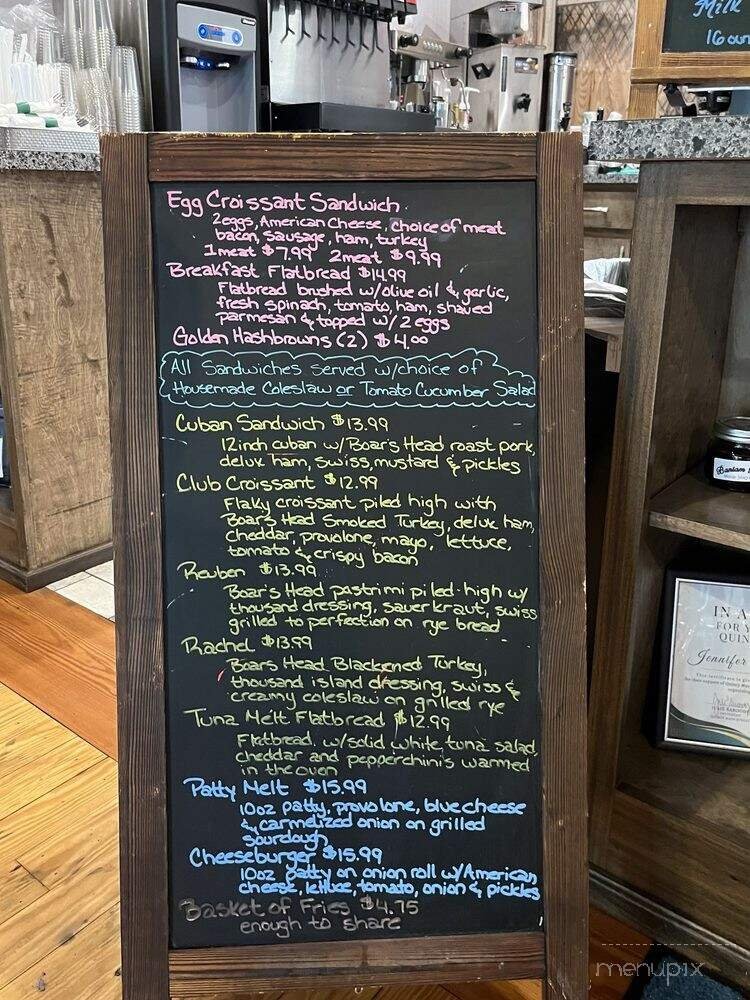 Milk
16 oun
Egg Croissant Sandwich
2eggs, American Cheese, choice of meat
bacon, sausage, ham, turkey
1meat $7.99 2meat $9.99
Breakfast Flatbread $14.99
Flatbread brushed w/olive oil & garlic,
fresh spinach, tomato, ham, shaved
parmesan & topped w/ 2 eggs
Golden Hashbrowns (2) $4.00
All Sandwiches served w/choice of
Housemade Coleslaw or Tomato Cucumber Salad
Cuban Sandwich $13.99
12inch cuban w/Boar's Head roast pork,
delux ham, swiss, mustard & pickles
Club Croissant $12.99
Flaky croissant piled high with
Boar's Head Smoked Turkey, delux ham,
cheddar, provolone, mayo, lettuce,
tomato & crispy bacon
Reuben $13.99
Boar's Head pastrimi piled high w/
thousand dressing, sauerkraut, swiss
grilled to perfection on rye bread
Rachel $13.99
Boars Head Blackened Turkey,
thousand island dressing, swiss &
creamy coleslaw on grilled rye
Tuna Melt Flatbread $12.99
Flatbread w/solid white tuna salad,
cheddar and pepperchinis warmed
in the oven
Patty Melt $15.99
10oz patty, provolone, blue cheese
& carmelized onion on grilled
sourdough
Cheeseburger $15.99
10oz patty on onion roll w/American
cheese, lettuce, tomato, onion & pickles
Basket of Fries $4.75
enough to share
IN A
FOR Y
QUIN
Jennifer
menupix